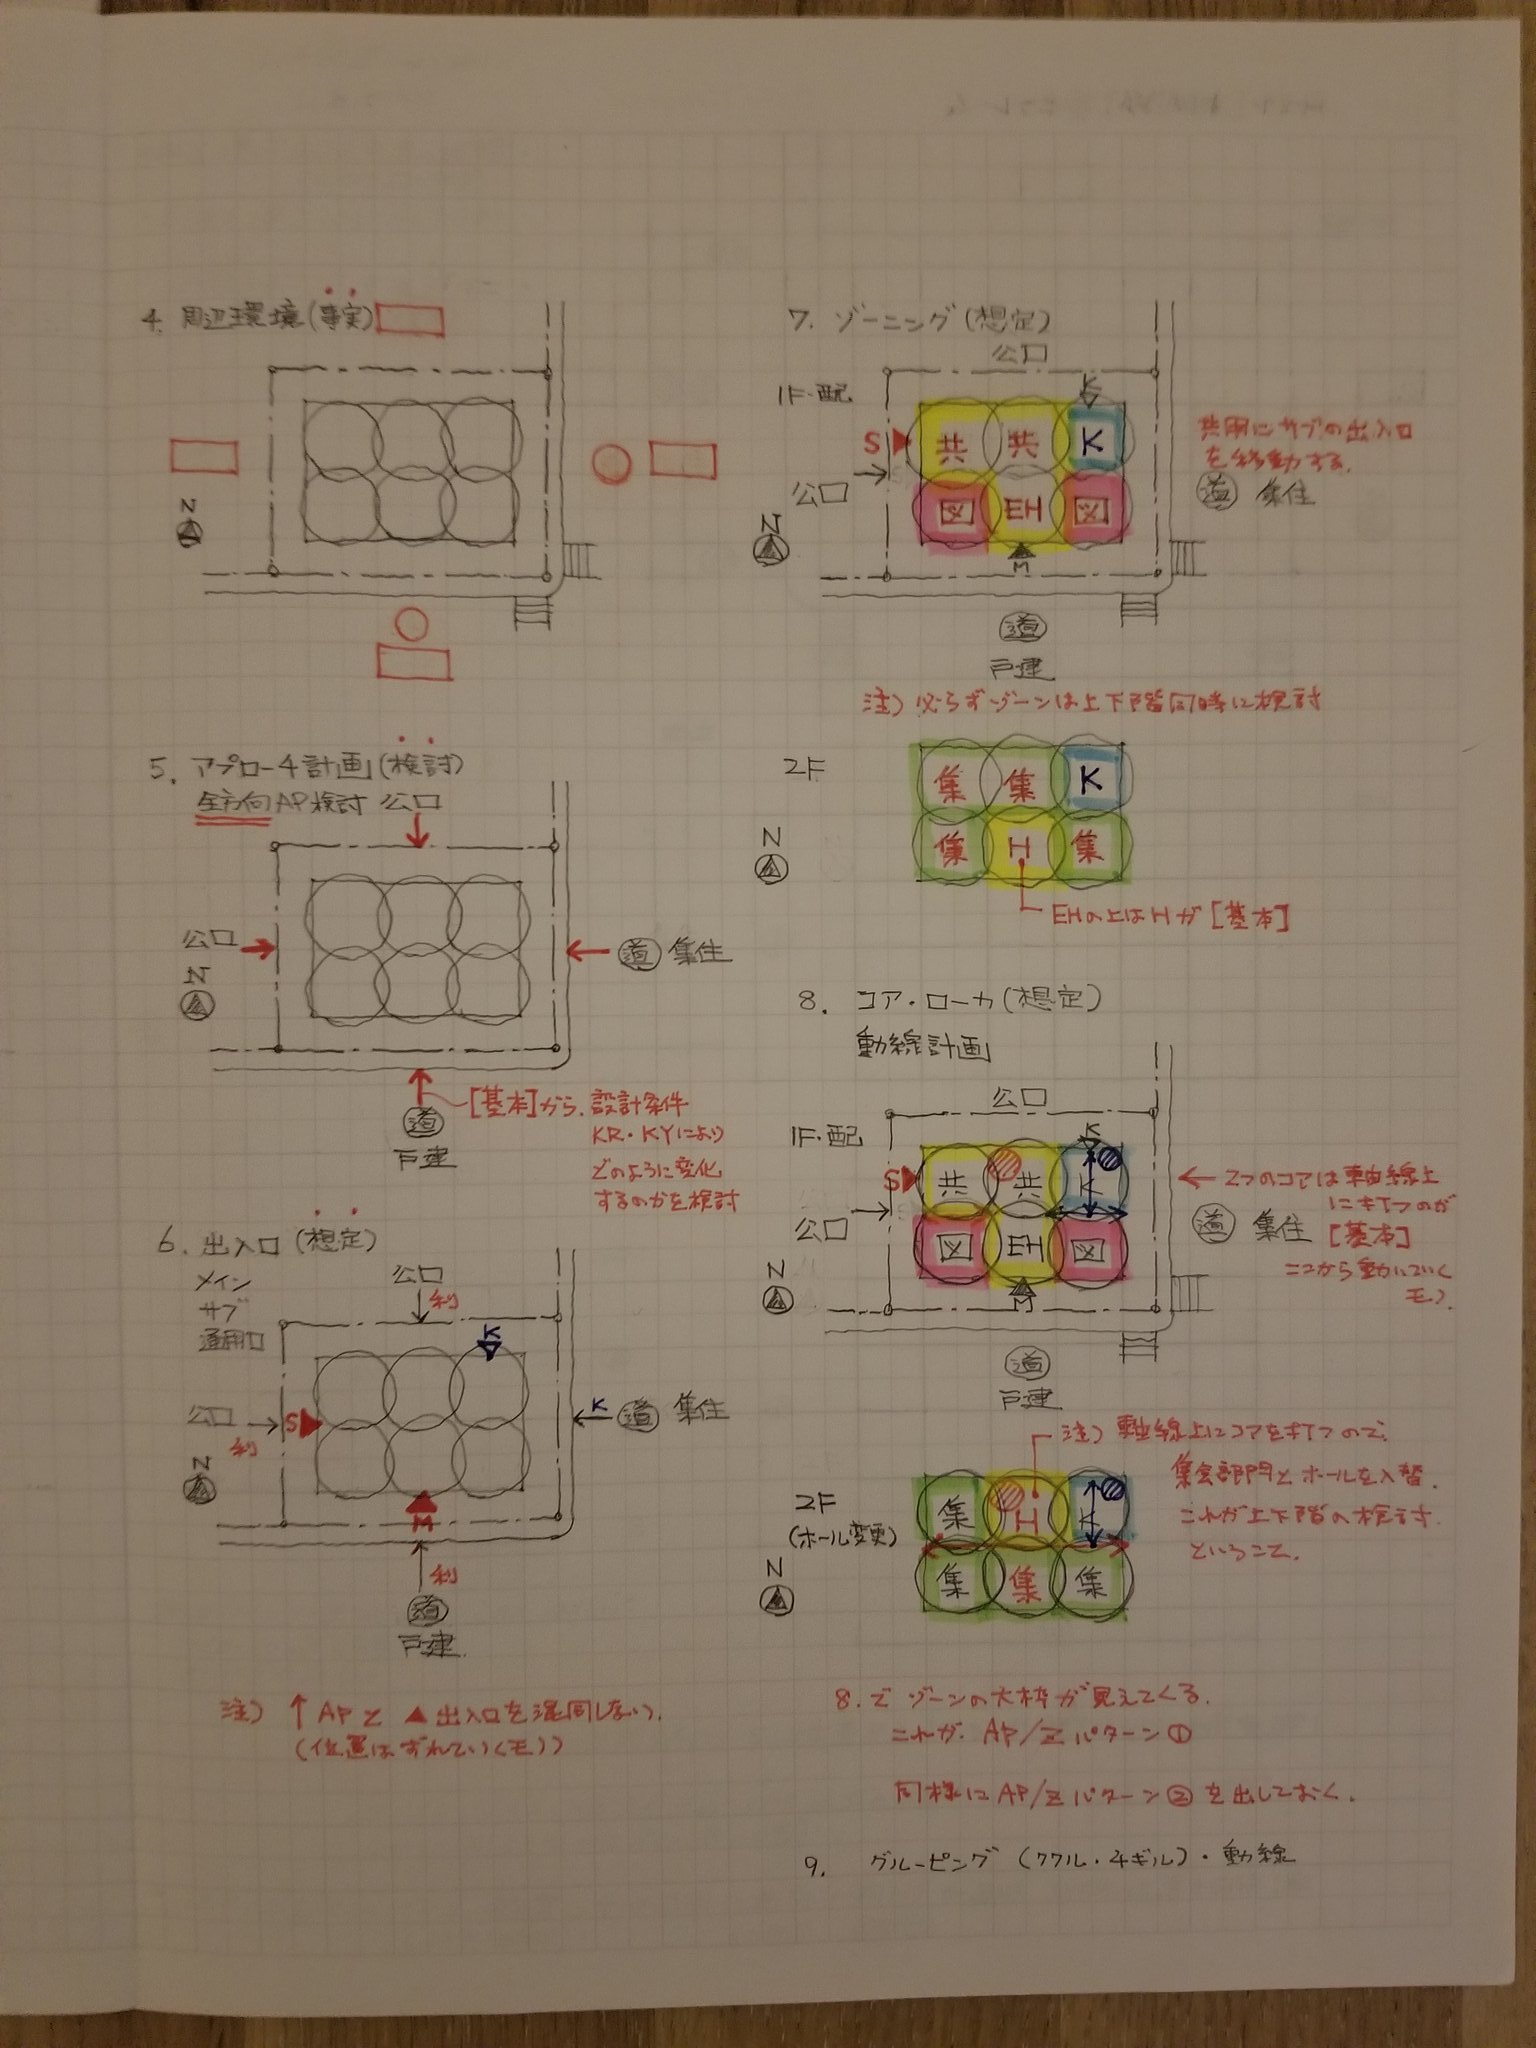 4. 周辺環境(事実)
N
5. アプローチ計画(検討)
全方向AP検討 公口
公口
道 集住
N
[基本]から、設計条件
KR・KYにより
どのように変化
するのかを検討
道
戸建
6. 出入口 (想定)
メイン
サブ
通用口
公口
利
K
公口
利
S
K
道 集住
N
M
利
道
戸建
注) ↑APと ▲出入口を混同しない.
(位置はずれていくモノ)
7. ゾーニング(想定)
公口
1F・配
K
S
共
共
K
共用にサブの出入口
を移動する.
公口
図
EH
図
道 集住
N
M
道
戸建
注) 必らずゾーンは上下階同時に検討
2F
集
集
K
N
集
H
集
EHの上はHが[基本]
8. コア・ローカ(想定)
動線計画
公口
1F・配
K
S
共
共
K
← 2つのコアは軸線上
に打つのが
[基本]
ここから動いていく
モノ.
公口
図
EH
図
道 集住
N
M
道
戸建
注) 軸線上にコアを打つので、
集会部門とホールを入替.
これが上下階の検討.
ということ.
2F
(ホール変更)
集
H
K
N
集
集
集
8.で ゾーンの大枠が見えてくる.
これが、AP/Z パターン①
同様に AP/Z パターン② を出しておく.
9. グルーピング (ククル・チギル)・動線